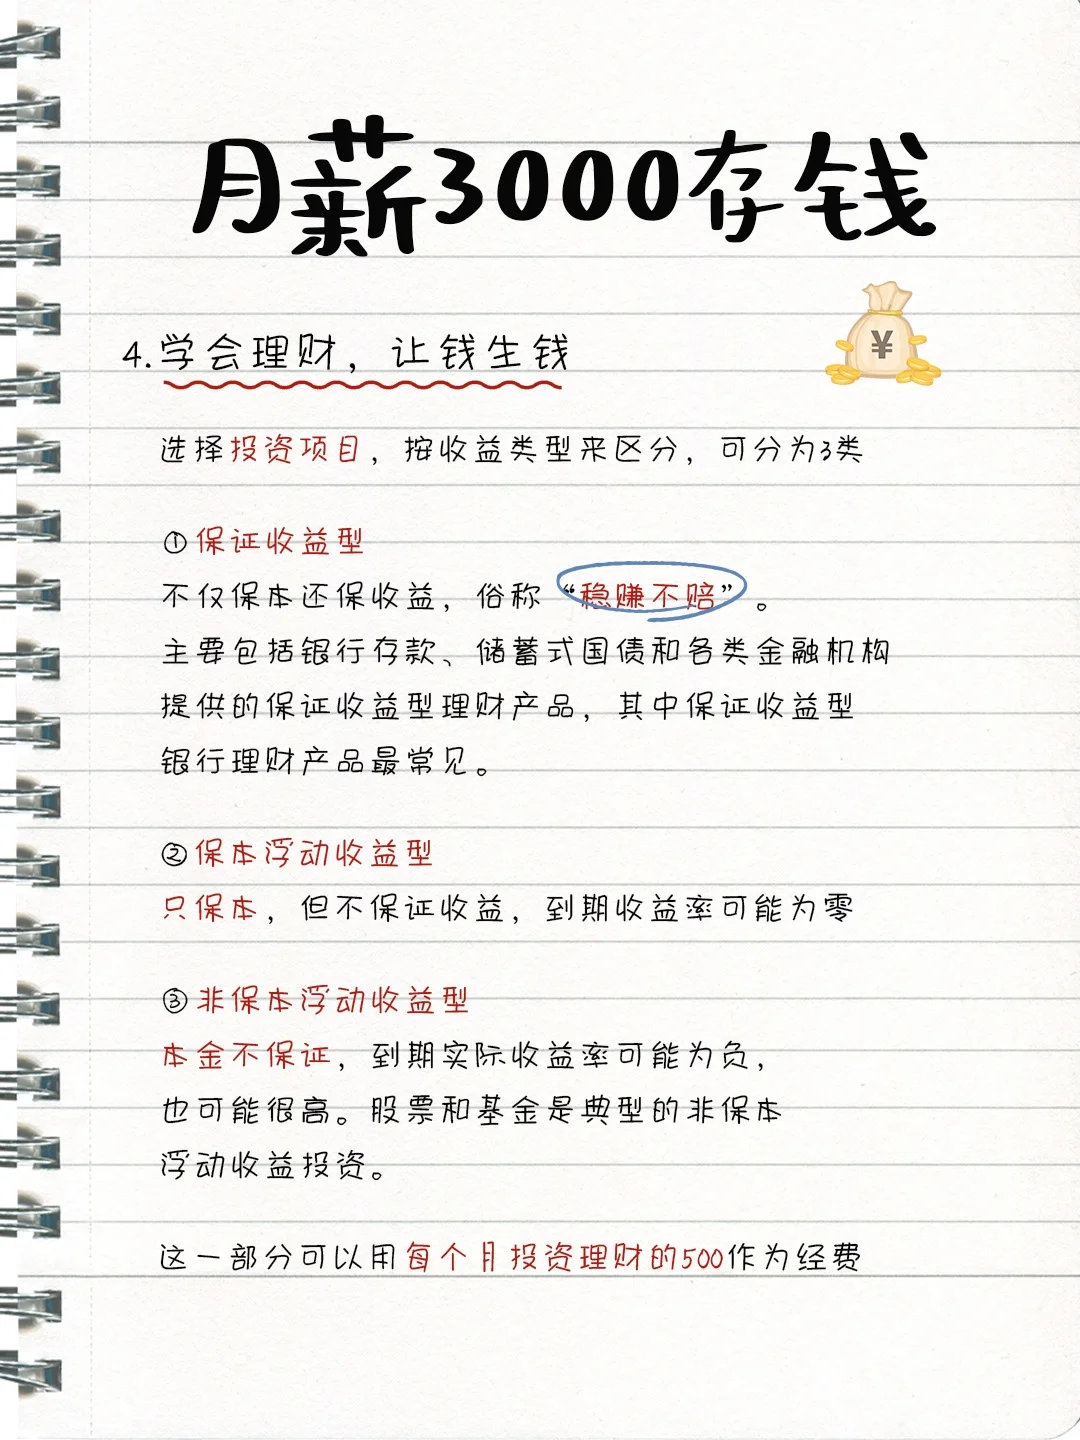 月薪3000存钱
¥
4.学会理财，让钱生钱
选择投资项目，按收益类型来区分，可分为3类
①保证收益型
不仅保本还保收益，俗称“稳赚不赔”。
主要包括银行存款、储蓄式国债和各类金融机构
提供的保证收益型理财产品，其中保证收益型
银行理财产品最常见。
②保本浮动收益型
只保本，但不保证收益，到期收益率可能为零
③非保本浮动收益型
本金不保证，到期实际收益率可能为负，
也可能很高。股票和基金是典型的非保本
浮动收益投资。
这一部分可以用每个月投资理财的500作为经费